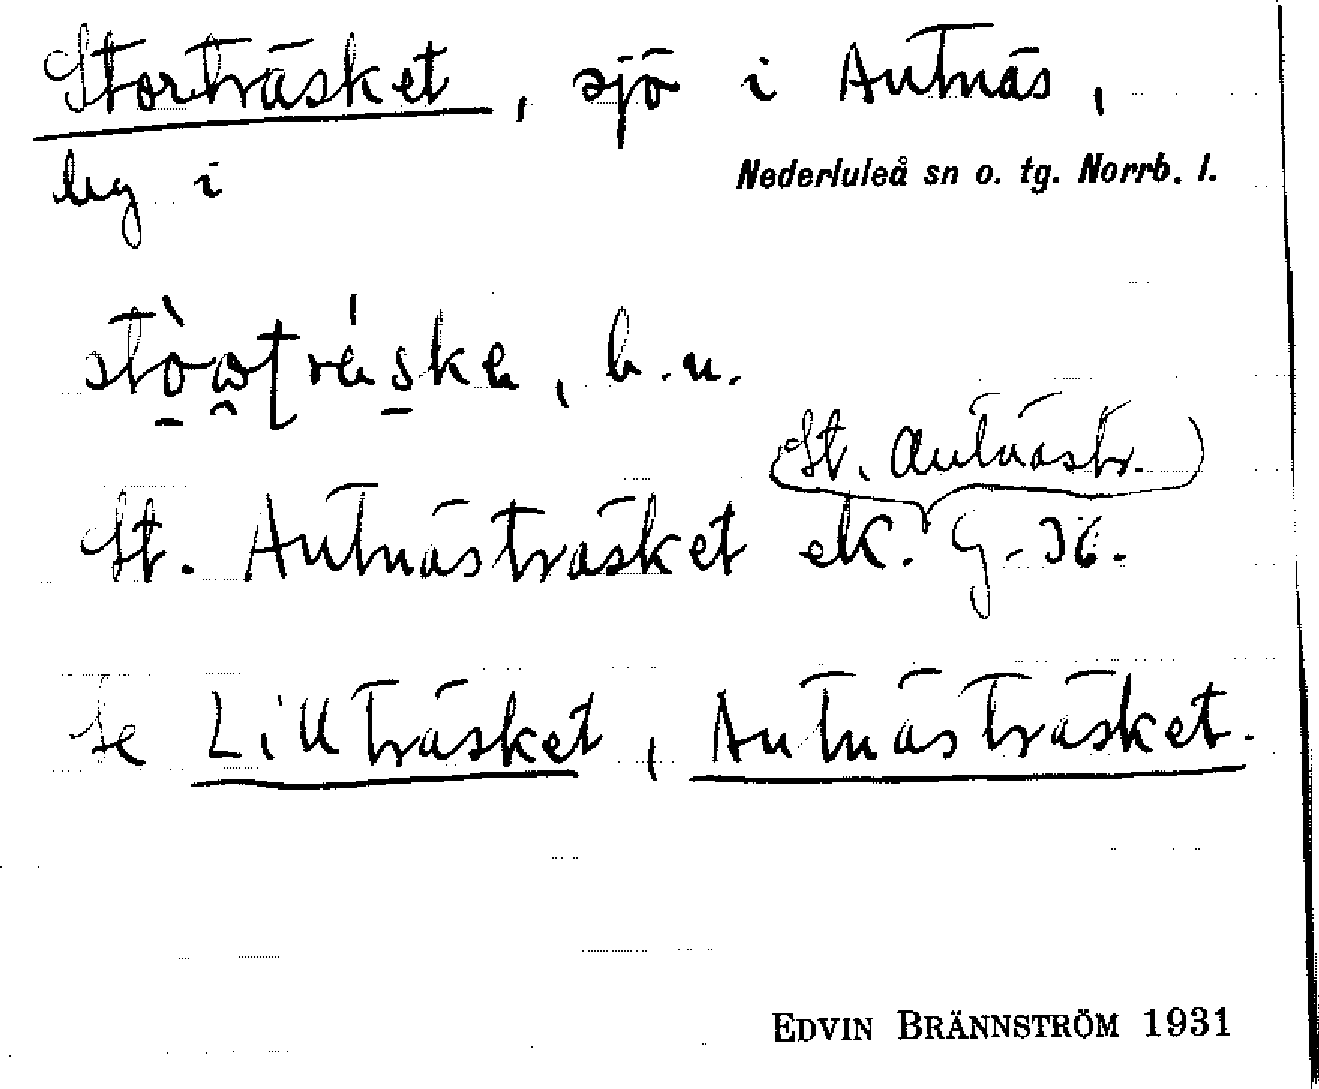 Storträsket, sjö i Antnäs,
by i Nederluleå sn o. tg. Norrb. l.
b.n.
(St. Antnästr.)
St. Antnästräsket ek. G-36.
Se Lillträsket, Antnästräsket.
EDVIN BRÄNNSTRÖM 1931